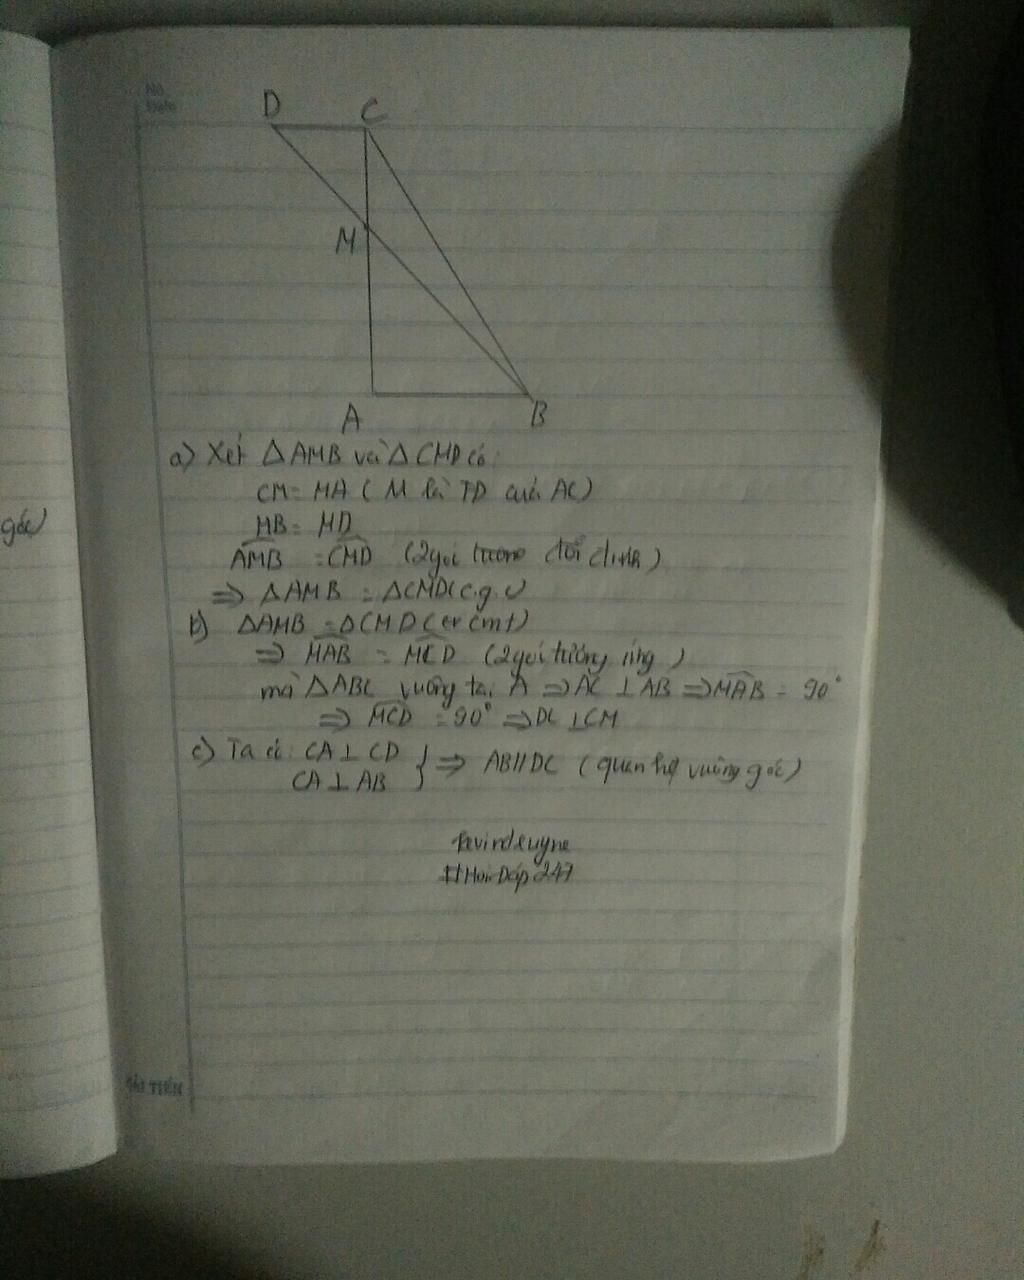 No.
Date
D C
M
A B
góc)
a) Xét ΔAMB và ΔCMD có:
CM = MA ( M là TĐ của AC)
MB = MD
AMB = CMD (2 góc tương đối đỉnh)
⇒ ΔAMB = ΔCMD(c.g.c)
b) ΔAMB = ΔCMD (cmt)
⇒ MAB = MCD (2 góc tương ứng )
mà ΔABC vuông tại A ⇒ AC ⊥ AB ⇒ MAB = 90°
⇒ MCD = 90° ⇒ DC ⊥ CM
c) Ta có: CA ⊥ CD
CA ⊥ AB } ⇒ AB // DC ( quan hệ vuông góc)
#HoiDap247
HẢI TIẾN